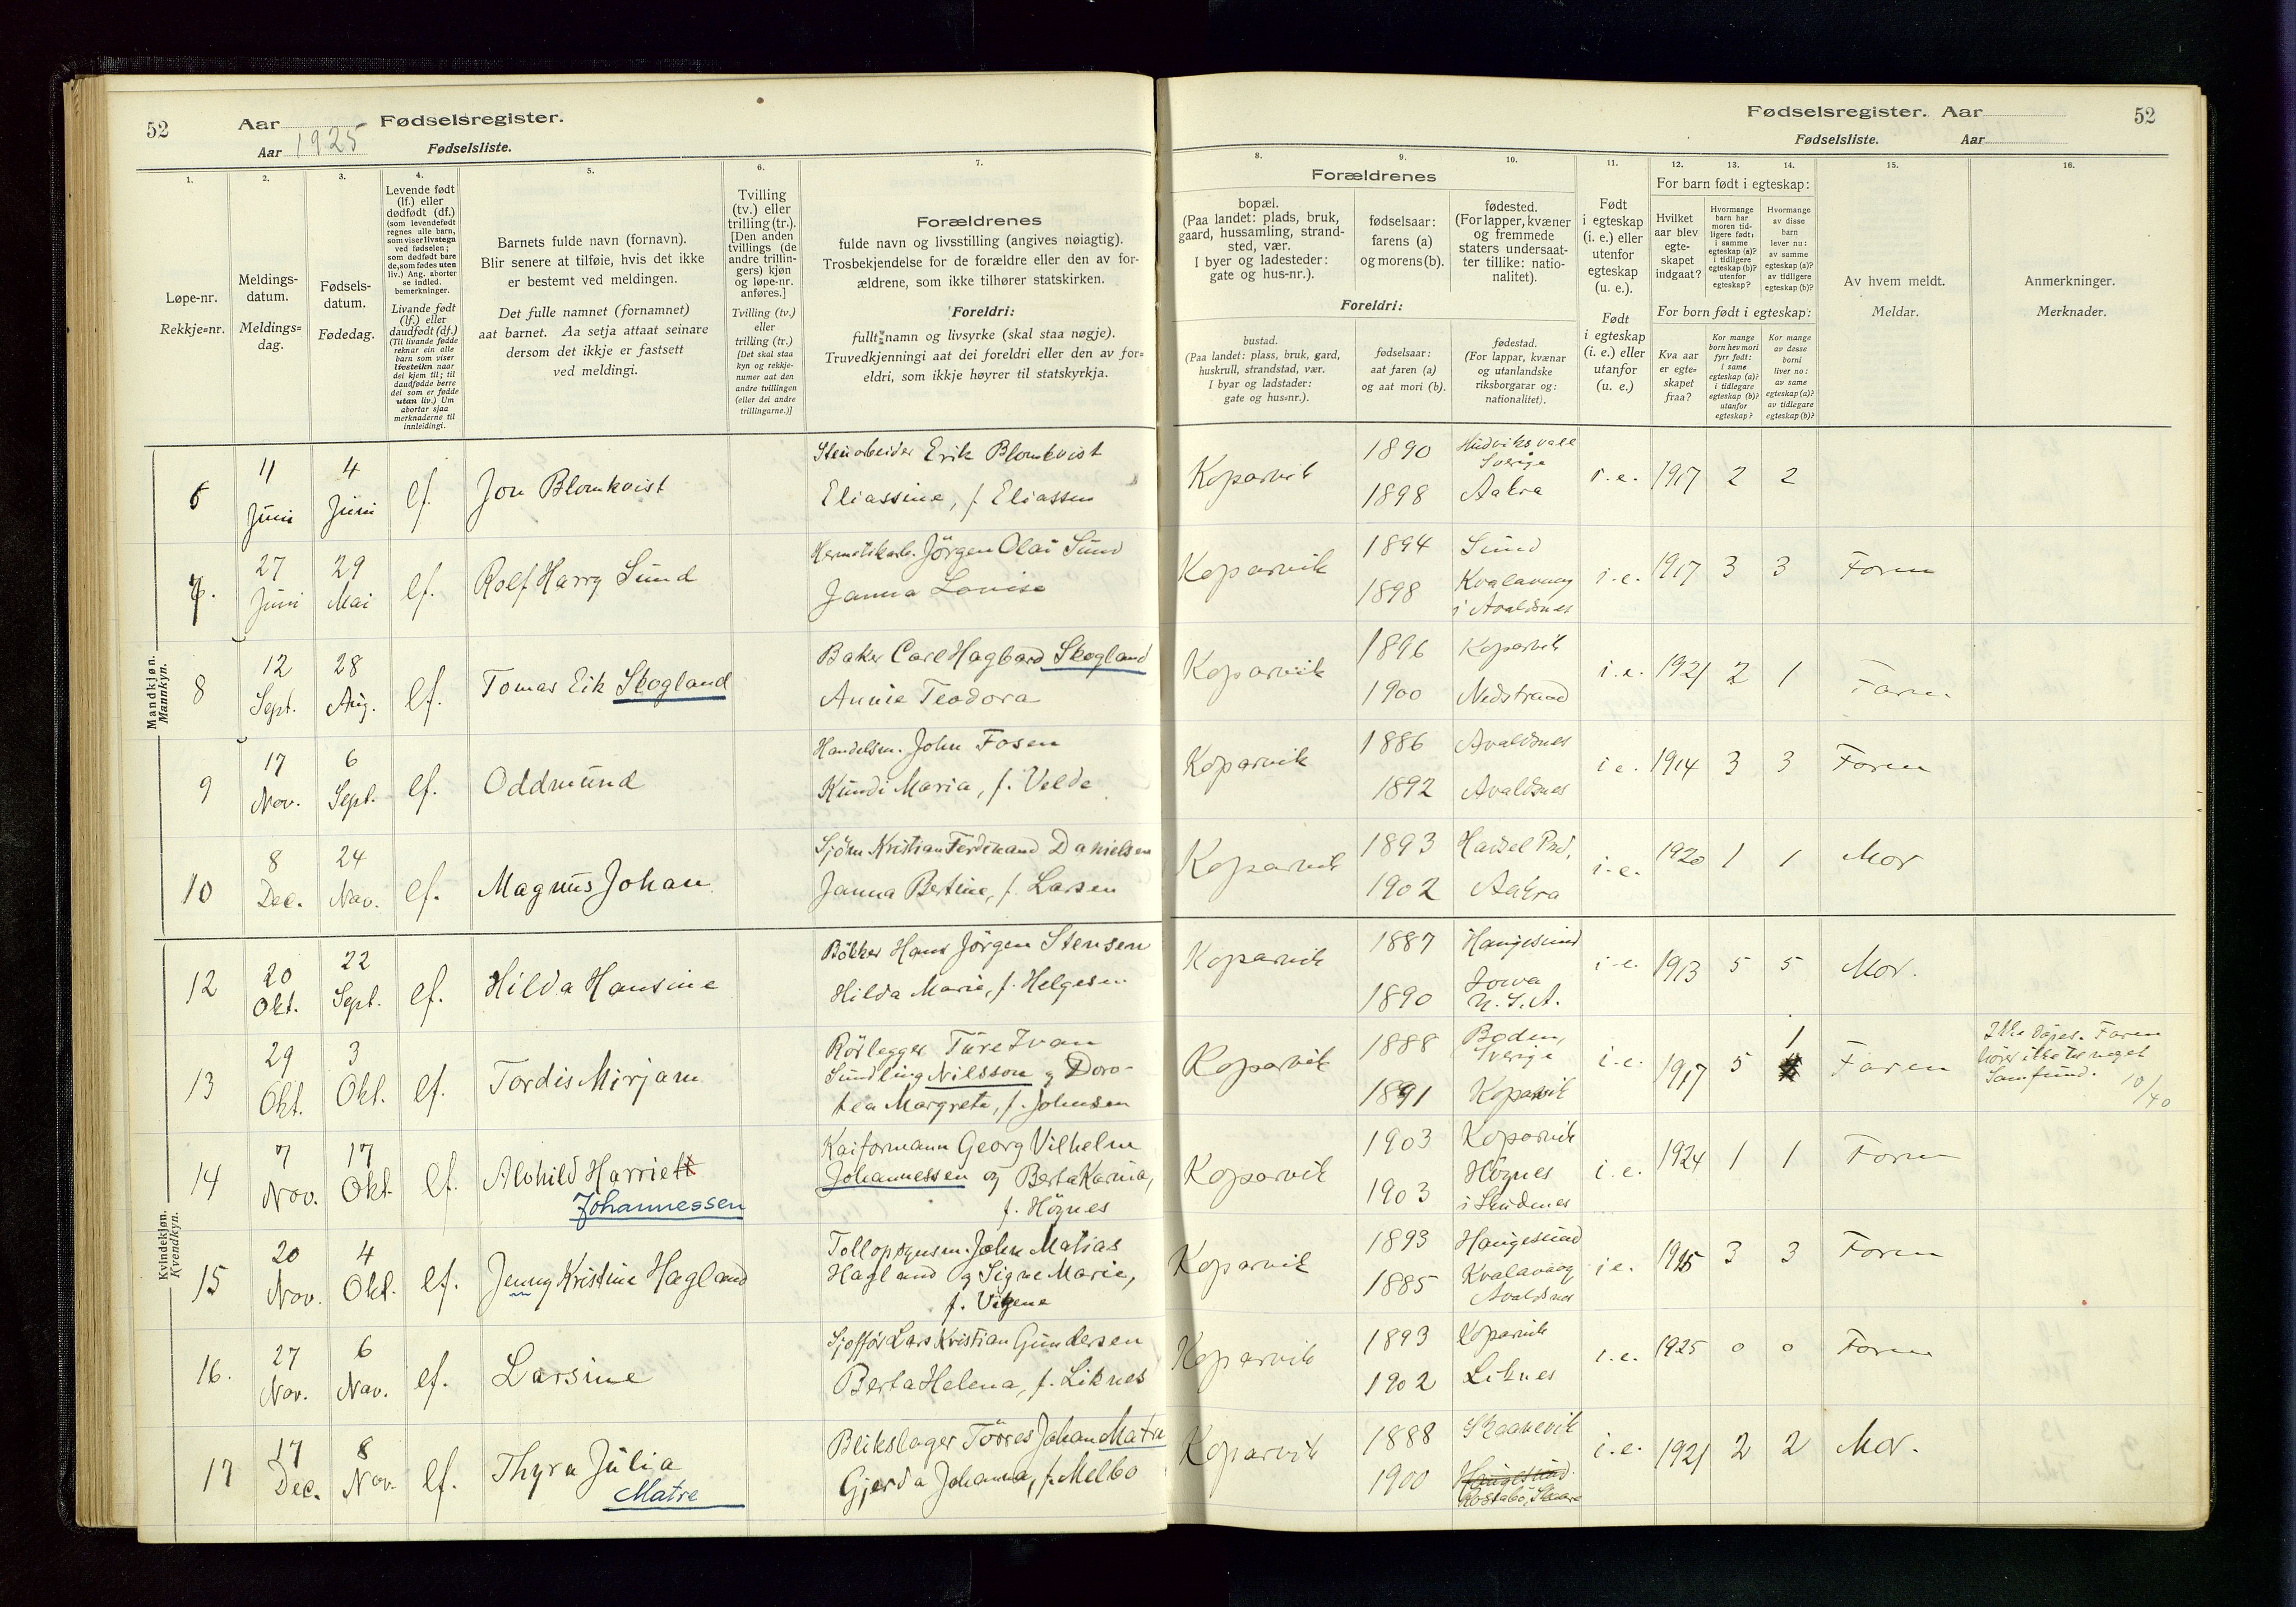 52 Aar Fødselsregister.
Aar 1925 Fødselsliste.
Fødselsregister. Aar 52
Fødselsliste. Aar
1. 2. 3. 4. 5. 6. 7.
Løpe-nr.
Rekkje=nr.
Meldings-
datum.
Meldings=
dag.
Fødsels-
datum.
Fødedag.
Levende født
(lf.) eller
dødfødt (df.)
(som levendefødt
regnes alle barn,
som viser livstegn
ved fødselen;
som dødfødt bare
de, som fødes uten
liv.) Ang. aborter
se indled.
bemerkninger.
Livande født
(lf.) eller
daudfødt (df.)
(Til livande fødde
reknar ein alle
barn som viser
livsteikn naar
dei kjem til; til
daudfødde berre
dei som er fødde
utan liv.) Um
abortar sjaa
merknaderne til
innleidingi.
Barnets fulde navn (fornavn).
Blir senere at tilføie, hvis det ikke
er bestemt ved meldingen.
Det fulle namnet (fornamnet)
aat barnet. Aa setja attaat seinare
dersom det ikkje er fastsett
ved meldingi.
Tvilling
(tv.) eller
trilling (tr.).
[Den anden
tvillings (de
andre trillin-
gers) kjøn
og løpe-nr.
anføres.]
Tvilling (tv.)
eller
trilling (tr.)
[Det skal staa
kyn og rekkje-
numer aat den
andre tvillingen
(eller dei andre
trillingarne.)]
Forældrenes
fulde navn og livsstilling (angives nøiagtig).
Trosbekjendelse for de forældre eller den av for-
ældrene, som ikke tilhører statskirken.
Foreldri:
fullt namn og livsyrke (skal staa nøgje).
Truvedkjenningi aat dei foreldri eller den av for=
eldri, som ikkje høyrer til statskyrkja.
8. 9. 10. 11. 12. 13. 14. 15. 16.
Forældrenes
bopæl.
(Paa landet: plads, bruk,
gaard, hussamling, strand-
sted, vær.
I byer og ladesteder:
gate og hus-nr.).
fødselsaar:
farens (a)
og morens (b).
fødested.
(For lapper, kvæner
og fremmede
staters undersaat-
ter tillike: natio-
nalitet).
Foreldri:
bustad.
(Paa landet: plass, bruk, gard,
huskrull, strandstad, vær.
I byar og ladstader:
gate og hus=nr.).
fødselsaar:
aat faren (a)
og aat mori (b).
fødestad.
(For lappar, kvænar
og utanlandske
riksborgarar og:
nationalitet).
Født
i egteskap
(i. e.) eller
utenfor
egteskap
(u. e.).
Født
i egteskap
(i. e.) eller
utanfor
(u. e.)
For barn født i egteskap:
Hvilket
aar blev
egte-
skapet
indgaat?
Hvormange
barn har
moren tid-
ligere født:
i samme
egteskap (a)?
i tidligere
egteskap (b)?
utenfor
egteskap?
Hvormange
av disse
barn
lever nu:
av samme
egteskap (a)?
av tidligere
egteskap (b)?
For born født i egteskap:
Kva aar
er egte=
skapet
fraa?
Kor mange
born hev mori
fyrr født:
i same
egteskap (a)?
i tidlegare
egteskap (b)?
utanfor
egteskap?
Kor mange
av desse
borni
liver no:
av same
egteskap (a)?
av tidlegare
egteskap (b)?
Av hvem meldt.
Meldar.
Anmerkninger.
Merknader.
Mandkjøn.
Mannkyn.
6 11 Juni 4 Juni lf. Jon Blomkvist
Stenarbeider Erik Blomkvist
Eliassine, f. Eliassen
Koparvik 1890 Hudviksvall Sverige
1898 Aakra
i.e. 1917 2 2
7. 27 Juni 29 Mai lf. Rolf Harry Sund
Hermetikarb. Jörgen Olai Sund
Janna Lovise
Koparvik 1894 Sund
1898 Kvalavaag i Avaldsnes
i.e. 1917 3 3 Faren
8 12 Sept. 28 Aug. lf. Tomas Eik Skogland
Baker Carl Hagbard Skogland
Annie Teodora
Koparvik 1896 Koparvik
1900 Nedstrand
i.e. 1921 2 1 Faren
9 17 Nov. 6 Sept. lf. Oddmund
Handelsm. John Fosen
Kundi Maria, f. Velde
Koparvik 1886 Avaldsnes
1892 Avaldsnes
i.e. 1914 3 3 Faren
10 8 Dec. 24 Nov. lf. Magnus Johan
Sjöm Kristian Ferdinand Danielsen
Janna Bertine, f. Larsen
Koparvik 1893 Hadsel
1902 Aakra
i.e. 1920 1 1 Mor
Kvindekjøn.
Kvendkyn.
12 20 Okt. 22 Sept. lf. Hilda Hansine
Bökker Hans Jörgen Stensen
Hilda Marie, f. Helgesen
Koparvik 1887 Haugesund
1890 Iowa U.S.A.
i.e. 1913 5 5 Mor.
13 29 Okt. 3 Okt. lf. Tordis Mirjam
Rörlegger Ture Ivan
Sundling Nilsson og Doro-
tea Margrete, f. Johnsen
Koparvik 1888 Boden, Sverige
1891 Koparvik
i.e. 1917 5 1 Faren
Ikke döpes. Faren
hörer ikke til noget
Samfund. 10/40
14 7 Nov. 17 Okt. lf. Alvhild Harriett
Johannessen
Kaiformann Georg Vilhelm
Johannessen og Berta Karina,
f. Högnes
Koparvik 1903 Koparvik
1903 Högnes i Skudenes
i.e. 1924 1 1 Faren
15 20 Nov. 4 Okt. lf. Jenny Kristine Hagland
Tollopsynsm. John Matias
Hagland og Signe Marie,
f. Vikene
Koparvik 1893 Haugesund
1885 Kvalavaag Avaldsnes
i.e. 1915 3 3 Faren
16. 27 Nov. 6 Nov. lf. Larsine
Sjofför Lars Kristian Gundersen
Berta Helena, f. Liknes
Koparvik 1893 Koparvik
1902 Liknes
i.e. 1925 0 0 Faren
17 17 Dec. 8 Nov. lf. Thyra Julia
Matre
Blikslager Törres Johan Matre
Gjerda Johanna, f. Melbo
Koparvik 1888 Skaanevik
1900 Haugesund
Rossabö, Skaare
i.e. 1921 2 2 Mor.